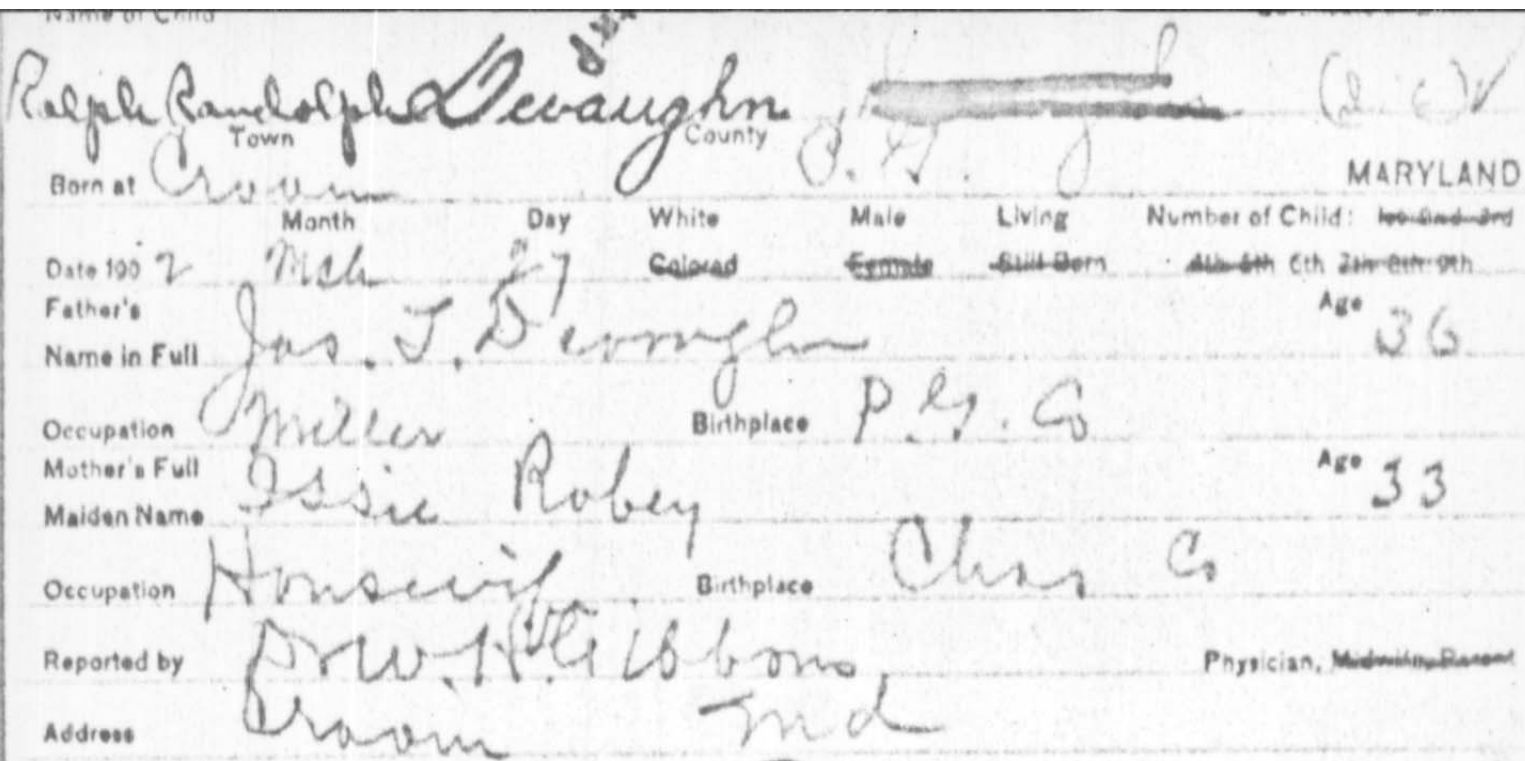 Name of Child
Ralph Randolph Devaughn
Town County
Born at Croom P. G. MARYLAND
Month Day White Male Living Number of Child: 1st 2nd 3rd
Date 190 2 Mch 27 Colored Female Still Born 4th 5th 6th 7th 8th 9th
Father's Age
Name in Full Jas. T. Devaughn 36
Occupation Miller Birthplace P. G. Co
Mother's Full Age
Maiden Name Issie Robey 33
Occupation Housewif Birthplace Chas Co
Reported by Dr W. H. Gibbons Physician, Midwife, Parent
Address Croom Md